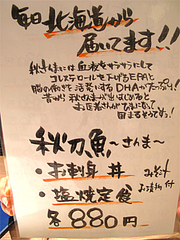 毎日北海道から
届いてます!!
秋刀魚には血液をサラサラにして
コレステロールを下げるEPAと
脳の働きを活発にするDHAがたっぷり!
昔から秋さんまが出はじめると
お医者さんがひまになって
困るそうです!
秋刀魚〜さんま〜
・お刺身丼 みそ汁
・塩焼定食 お漬物付
各880円